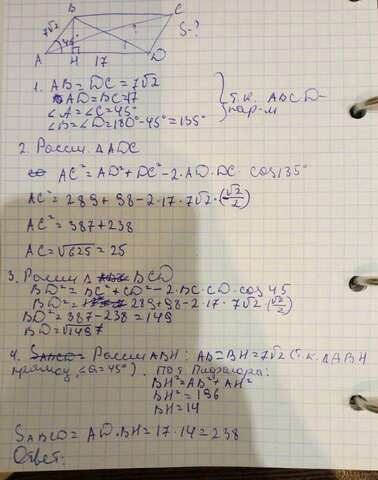 B C
7√2 S-?
45° ?
A H 17 D
1. AB = DC = 7√2
AD = BC = 17
∠A = ∠C = 45°
∠B = ∠D = 180° - 45° = 135°
т.к. ABCD -
пар-м
2. Рассм. ΔADC
AC² = AD² + DC² - 2·AD·DC·cos135°
AC² = 289 + 98 - 2·17·7√2·(√2/2)
AC² = 387 + 238
AC = √625 = 25
3. Рассм Δ BCD
BD² = BC² + CD² - 2·BC·CD·cos 45
BD² = 289 + 98 - 2·17·7√2(√2/2)
BD² = 387 - 238 = 149
BD = √149
4. Рассм ABH: AB = BH = 7√2 (т.к. ΔABH
прямоуг, ∠a = 45°). По т. Пифагора:
BH² = AB² + AH²
BH² = 196
BH = 14
SABCD = AD·BH = 17·14 = 238
Ответ: